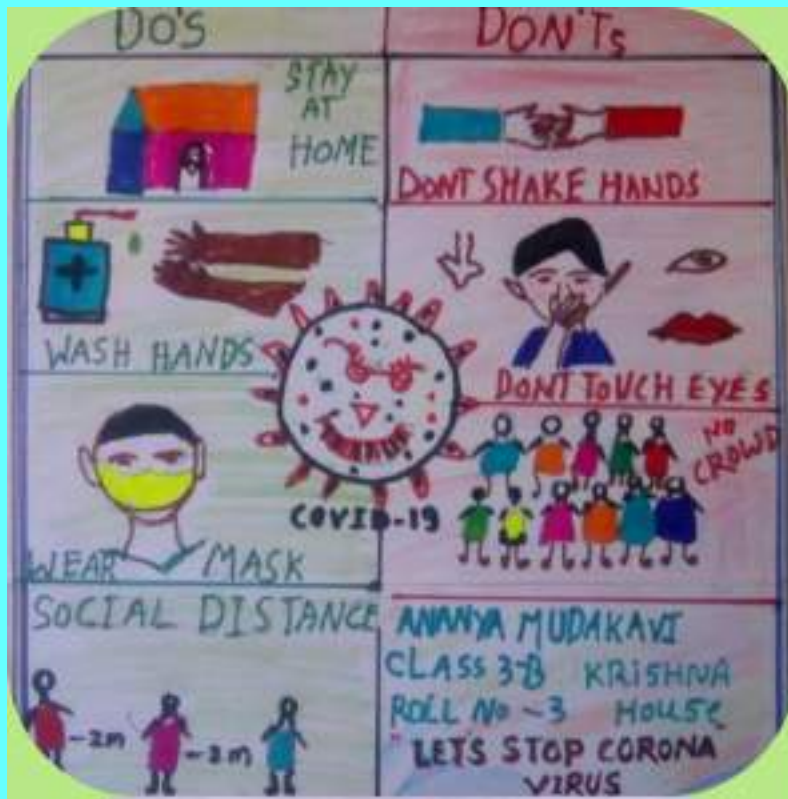 DO'S
STAY
AT
HOME
WASH HANDS
WEAR MASK
SOCIAL DISTANCE
-2m
-2m
DON'Ts
DONT SHAKE HANDS
DONT TOUCH EYES
NO
CROWD
COVID-19
ANANYA MUDAKAVI
CLASS 3-B KRISHNA
ROLL No -3 HOUSE
"LETS STOP CORONA
VIRUS